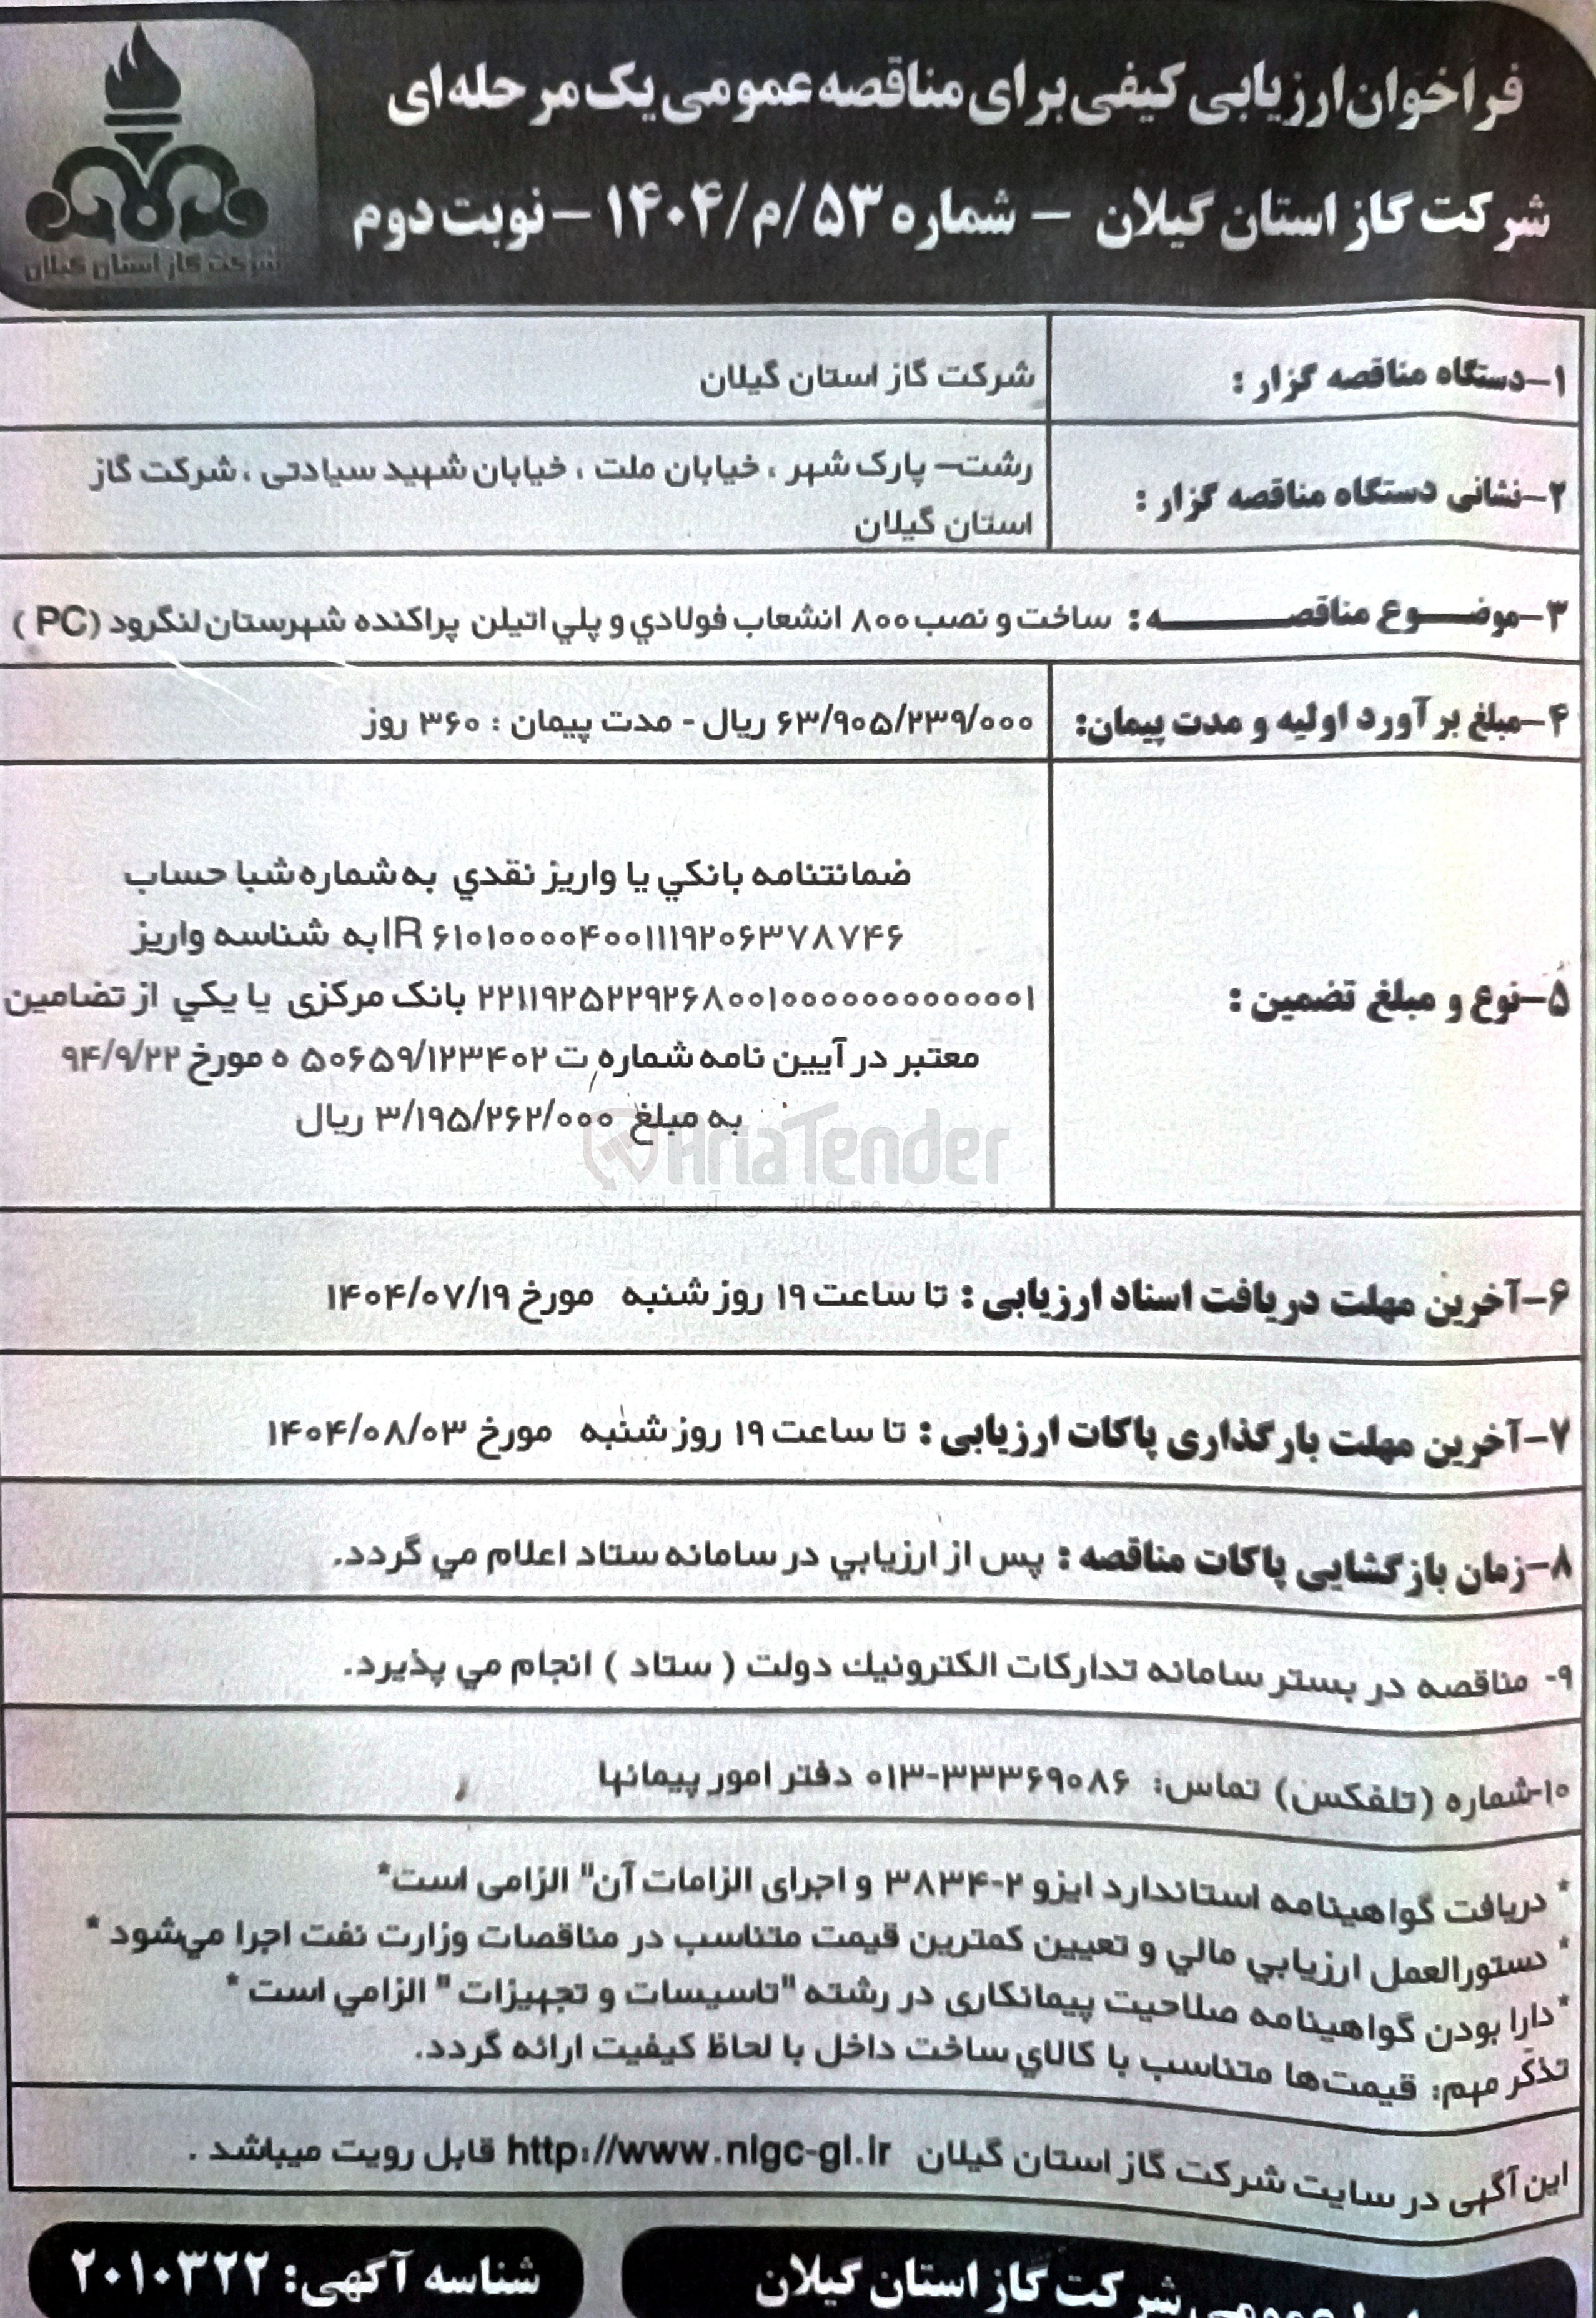 فراخوان ارزیابی کیفی برای مناقصه عمومی یک مرحله ای
شرکت گاز استان گیلان – شماره ۵۳/م/۱۴۰۴ – نوبت دوم
شرکت گاز استان گیلان
۱-دستگاه مناقصه گزار :
شرکت گاز استان گیلان
۲-نشانی دستگاه مناقصه گزار :
رشت- پارک شهر ، خیابان ملت ، خیابان شهید سیادتی ، شرکت گاز
استان گیلان
۳-موضـوع مناقصـــه : ساخت و نصب ۸۰۰ انشعاب فولادي و پلي اتیلن پراکنده شهرستان لنگرود (PC )
۴-مبلغ برآورد اولیه و مدت پیمان:
۶۳/۹۰۵/۲۳۹/۰۰۰ ریال - مدت پیمان : ۳۶۰ روز
۵-نوع و مبلغ تضمین :
ضمانتنامه بانکي یا واریز نقدي به شماره شبا حساب
IR ۶۱۰۱۰۰۰۰۴۰۰۱۱۱۹۲۰۶۳۷۸۷۴۶ به شناسه واریز
۲۲۱۱۹۲۵۲۲۹۲۶۸۰۰۱۰۰۰۰۰۰۰۰۰۰۰۰۱ بانک مرکزی یا یکي از تضامین
معتبر در آیین نامه شماره ت ۵۰۶۵۹/۱۲۳۴۰۲ ه مورخ ۹۴/۹/۲۲
به مبلغ ۳/۱۹۵/۲۶۲/۰۰۰ ریال
AriaTender
۶-آخرین مهلت دریافت اسناد ارزیابی : تا ساعت ۱۹ روز شنبه مورخ ۱۴۰۴/۰۷/۱۹
۷-آخرین مهلت بارگذاری پاکات ارزیابی : تا ساعت ۱۹ روز شنبه مورخ ۱۴۰۴/۰۸/۰۳
۸-زمان بازگشایی پاکات مناقصه : پس از ارزیابي در سامانه ستاد اعلام مي گردد.
۹- مناقصه در بستر سامانه تدارکات الکترونیك دولت ( ستاد ) انجام مي پذیرد.
۱۰-شماره (تلفکس) تماس: ۳۳۳۶۹۰۸۶-۰۱۳ دفتر امور پیمانها
* دریافت گواهینامه استاندارد ایزو ۲-۳۸۳۴ و اجرای الزامات آن" الزامی است*
* دستورالعمل ارزیابي مالي و تعیین کمترین قیمت متناسب در مناقصات وزارت نفت اجرا مي‌شود *
*دارا بودن گواهینامه صلاحیت پیمانکاری در رشته "تاسیسات و تجهیزات " الزامي است *
تذکر مهم: قیمت‌ها متناسب با کالاي ساخت داخل با لحاظ کیفیت ارائه گردد.
این آگهی در سایت شرکت گاز استان گیلان http://www.nigc-gl.ir قابل رویت میباشد .
شرکت گاز استان گیلان
شناسه آگهی: ۲۰۱۰۳۲۲